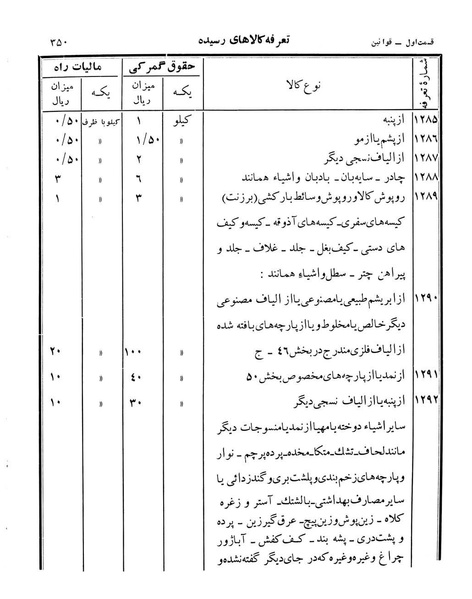 قسمت اول ــ قوانین تعرفه کالاهای رسیده ۳۵۰
شمارهٔ تعرفه نوع کالا حقوق گمرکی مالیات راه
یکه میزان ریال یکه میزان ریال
۱۲۸۵ از پنبه کیلو ۱ کیلو با ظرف ۰/۵۰
۱۲۸۶ از پشم یا از مو » ۱/۵۰ » ۰/۵۰
۱۲۸۷ از الیاف نسجی دیگر » ۲ » ۰/۵۰
۱۲۸۸ چادر ــ سایه‌بان ــ بادبان و اشیاء همانند » ۶ » ۳
۱۲۸۹ روپوش کالا و روپوش وسائط بارکشی (برزنت) » ۳ » ۱
کیسه‌های سفری ــ کیسه‌های آذوقه ــ کیسه و کیف
های دستی ــ کیف بغل ــ جلد ــ غلاف ــ جلد و
پیراهن چتر ــ سطل و اشیاء همانند :
۱۲۹۰ از ابریشم طبیعی یا مصنوعی یا از الیاف مصنوعی
دیگر خالص یا مخلوط و یا از پارچه‌های بافته شده
از الیاف فلزی مندرج در بخش ۴۶ ــ ج » ۱۰۰ » ۲۰
۱۲۹۱ از نمد یا از پارچه‌های مخصوص بخش ۵۰ » ۴۰ » ۱۰
۱۲۹۲ از پنبه یا از الیاف نسجی دیگر » ۳۰ » ۱۰
سایر اشیاء دوخته یا مهیا از نمد یا منسوجات دیگر
مانند لحاف ــ تشك ــ متکا ــ مخده ــ پرده پرچم ــ نوار
و پارچه‌های زخم بندی و پلشت بری و گندزدائی یا
سایر مصارف بهداشتی ــ بالشتك ــ آستر و زغره
کلاه ــ زین‌پوش و زین‌پیچ ــ عرق گیر زین ــ پرده
و پشت دری ــ پشه بند ــ کف کفش ــ آباژور
چراغ و غیره و غیره که در جای دیگر گفته نشده و